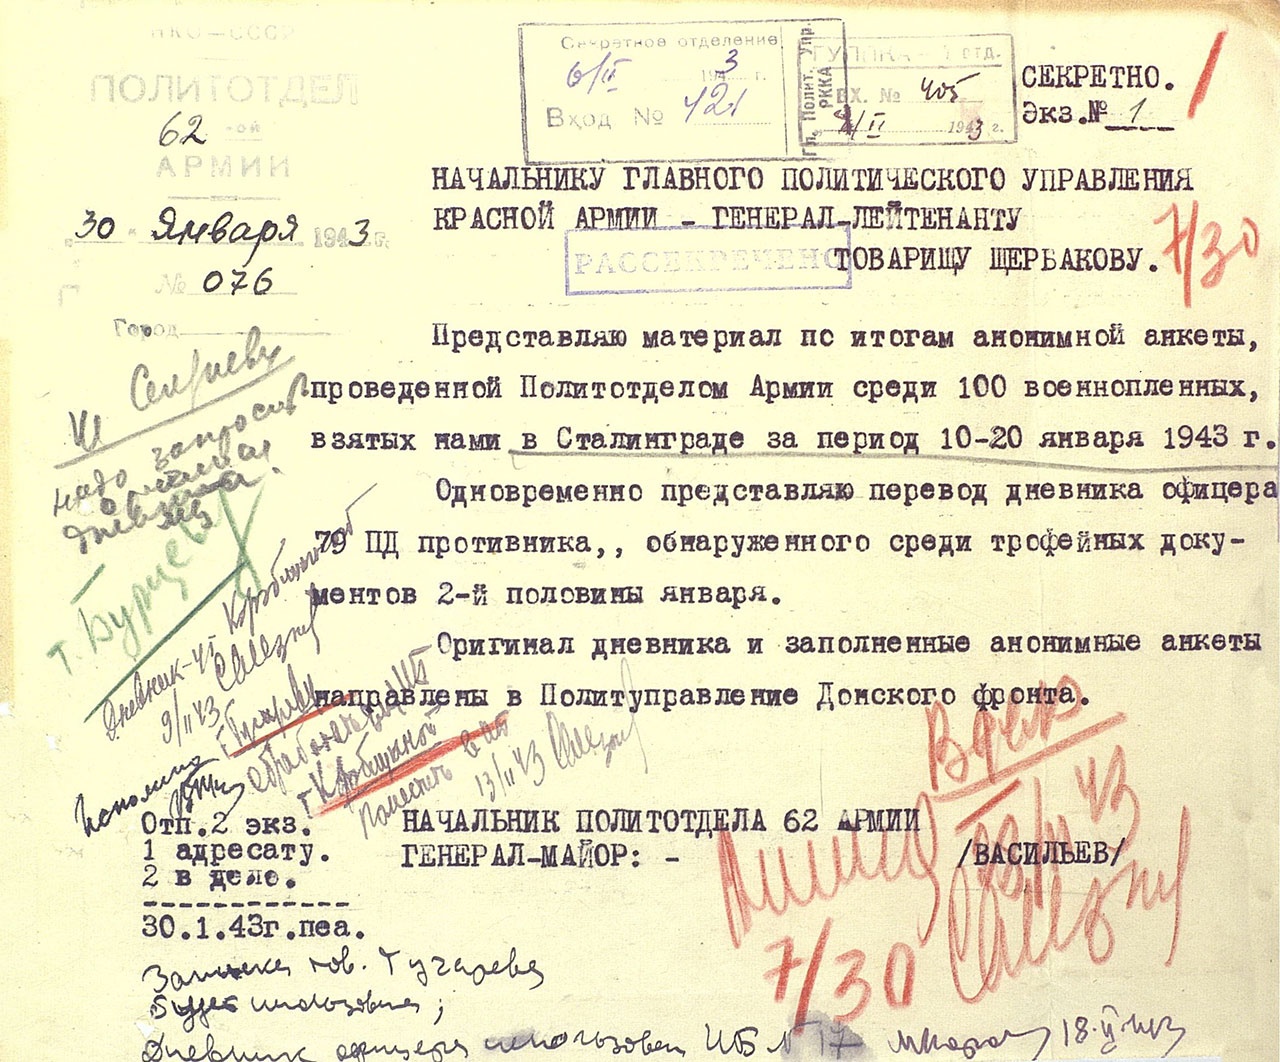 НКО—СССР
ПОЛИТОТДЕЛ
62 -ой
АРМИИ
"30" Января 1943 г.
№ 076
Город
Секретное отделение
6/II 1943 г.
Вход № 421
Гл. Полит. Упр. РККА
ВХ. № 405
/II 1943 г.
СЕКРЕТНО.
Экз.№ 1
НАЧАЛЬНИКУ ГЛАВНОГО ПОЛИТИЧЕСКОГО УПРАВЛЕНИЯ
КРАСНОЙ АРМИИ - ГЕНЕРАЛ-ЛЕЙТЕНАНТУ
РАССЕКРЕЧЕНО
ТОВАРИЩУ ЩЕРБАКОВУ.
7/30
Представляю материал по итогам анонимной анкеты,
проведенной Политотделом Армии среди 100 военнопленных,
взятых нами в Сталинграде за период 10-20 января 1943 г.
Одновременно представляю перевод дневника офицера
79 ПД противника,, обнаруженного среди трофейных доку-
ментов 2-й половины января.
Оригинал дневника и заполненные анонимные анкеты
направлены в Политуправление Донского фронта.
надо запросить
т. Бурцеву
Дневник-
9/II 43
13/II 43
В дело
7/30
НАЧАЛЬНИК ПОЛИТОТДЕЛА 62 АРМИИ
ГЕНЕРАЛ-МАЙОР: - /ВАСИЛЬЕВ/
Отп.2 экз.
1 адресату.
2 в дело.
------------
30.1.43г.пеа.
Записка тов. Гугарева
будет использована;
Дневник офицера использован ИБ № 17 18.II.43